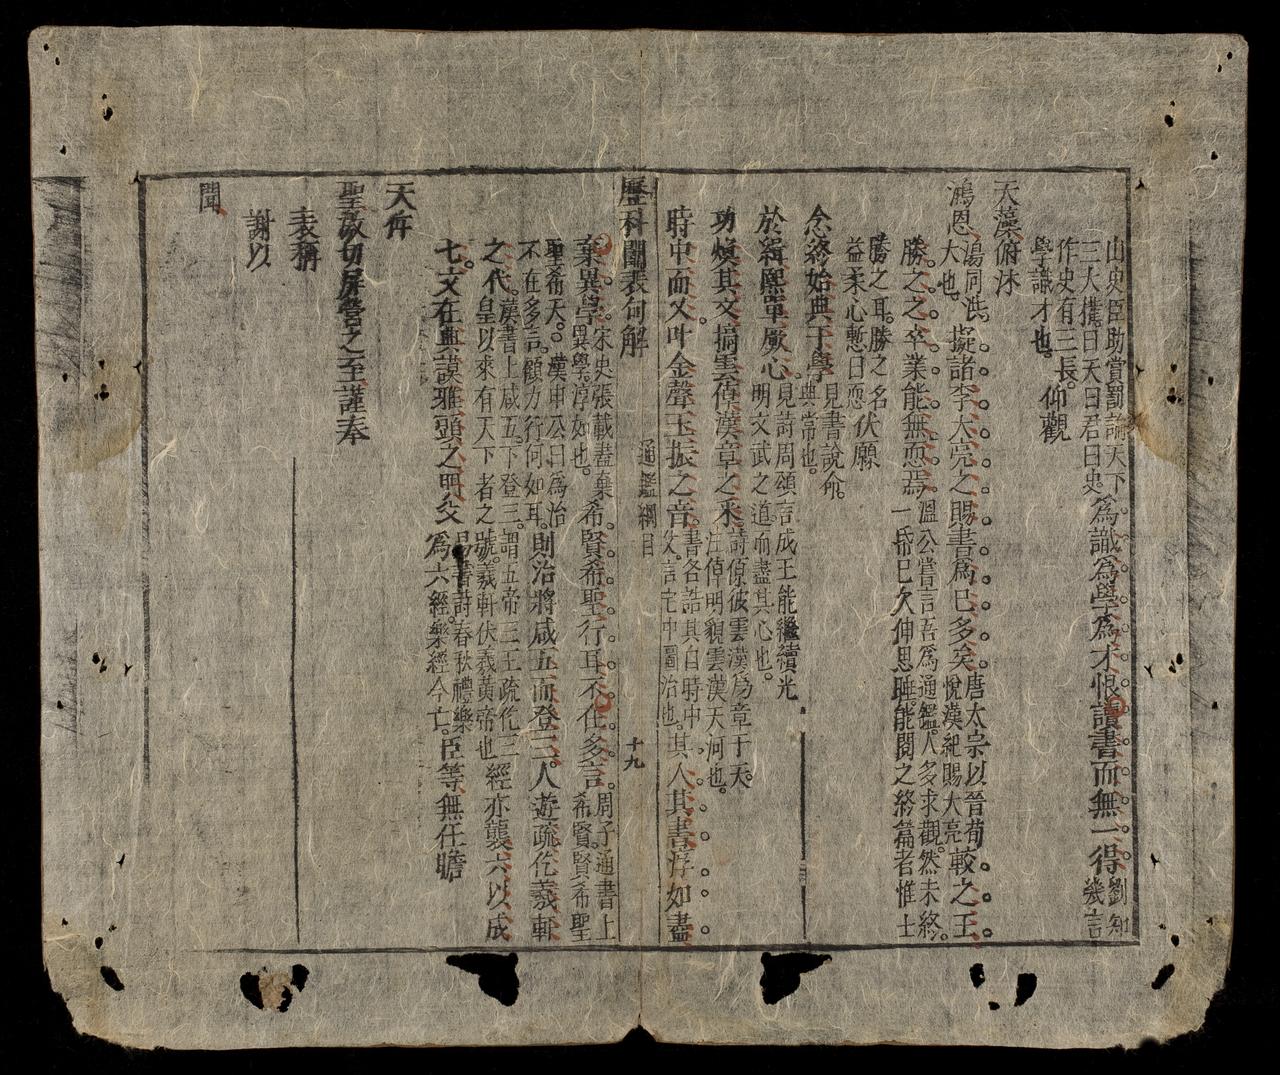 山史臣助賞罰論天下
三大權。曰天曰君曰史。爲識爲學爲才恨讀書而無一得劉知幾言
作史有三長。仰觀
學識才也。
天藻俯沐
鴻恩鴻同洪。大也。擬諸李大亮之賜書爲已多矣唐太宗以晉荀悅漢紀賜大亮較之王
勝之之卒業能無恧焉溫公嘗言吾爲通鑑。人多求觀。然未終一帋已欠伸思睡。能閱之終篇者惟士
勝之耳。勝之名
益柔心慙曰恧伏願
念終始典于學見書說命。典常也。
於緝熙單厥心見詩周頌言成王能繼續光明文武之道而盡其心也。
功煥其文摛雲倬漢章之釆詩倬彼雲漢爲章于天。注倬明貌雲漢天河也。
時中而又叶金聲玉振之音。書各誥其自時中乂。言宅中圖治也其人其書淳如盡
歷科闈表句解 通鑑綱目 十九
棄異學。宋史張載盡棄異學。淳如也。希賢希聖行耳不在多言。周子通書上希賢。賢希聖
聖希天。漢申公曰爲治不在多言。顧力行何如耳。則治將咸五而登三。人遊疏仡羲軒
之代。漢書上咸五。下登三。謂五帝三王疏仡三皇以來有天下者之號。羲軒伏羲黃帝也經亦襲六以成
七。文在典謨雅頌之間爻易書詩春秋禮樂爲六經。樂經今亡。臣等無任瞻
天仰
聖激切屏營之至謹奉
表稱
謝以
聞